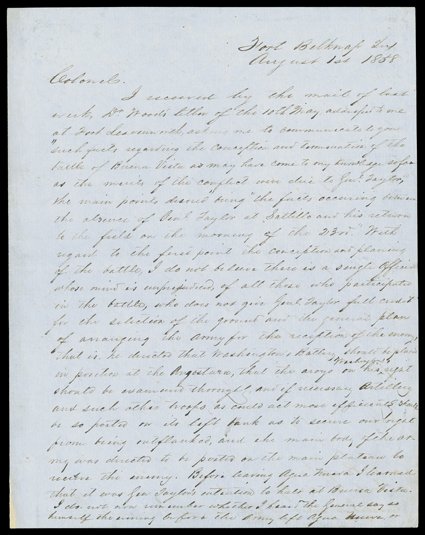 Fort Belknap Tex
August 1st 1858
Colonel.
I received by the mail of last
week, Dr Woods letter of the 10th May addressed to me
at Fort Leavenworth, asking me to communicate to you
"such facts regarding the conception and termination of the
battle of Buena Vista as may have come to my knowledge so far
as the merits of the conflict were due to Genl Taylor,"
the main points desired being "the facts occurring between
the absence of Genl Taylor at Saltillo and his return
to the field on the morning of the 23rd." With
regard to the first point the conception and planning
of the battle, I do not believe there is a single Officer
whose mind is unprejudiced, of all those who participated
in the battle, who does not give Genl Taylor full credit
for the selection of the ground and the general plan
of arranging the Army for the reception of the enemy,
that is, he directed that Washington's Battery should be placed
in position at the Angostura, that the arroyo on Washington's right
should be examined through, and if necessary Artillery
and such other troops as could act more efficiently should
be so posted on its left bank as to secure our right
from being outflanked, and the main body of the ar-
my was directed to be posted on the main plateau to
receive the enemy. Before leaving Agua Nueva I learned
that it was Gen Taylor's intention to halt at Buena Vista.
I do not now remember whether I heard the General say so
himself the evening before the Army left Agua Nueva or